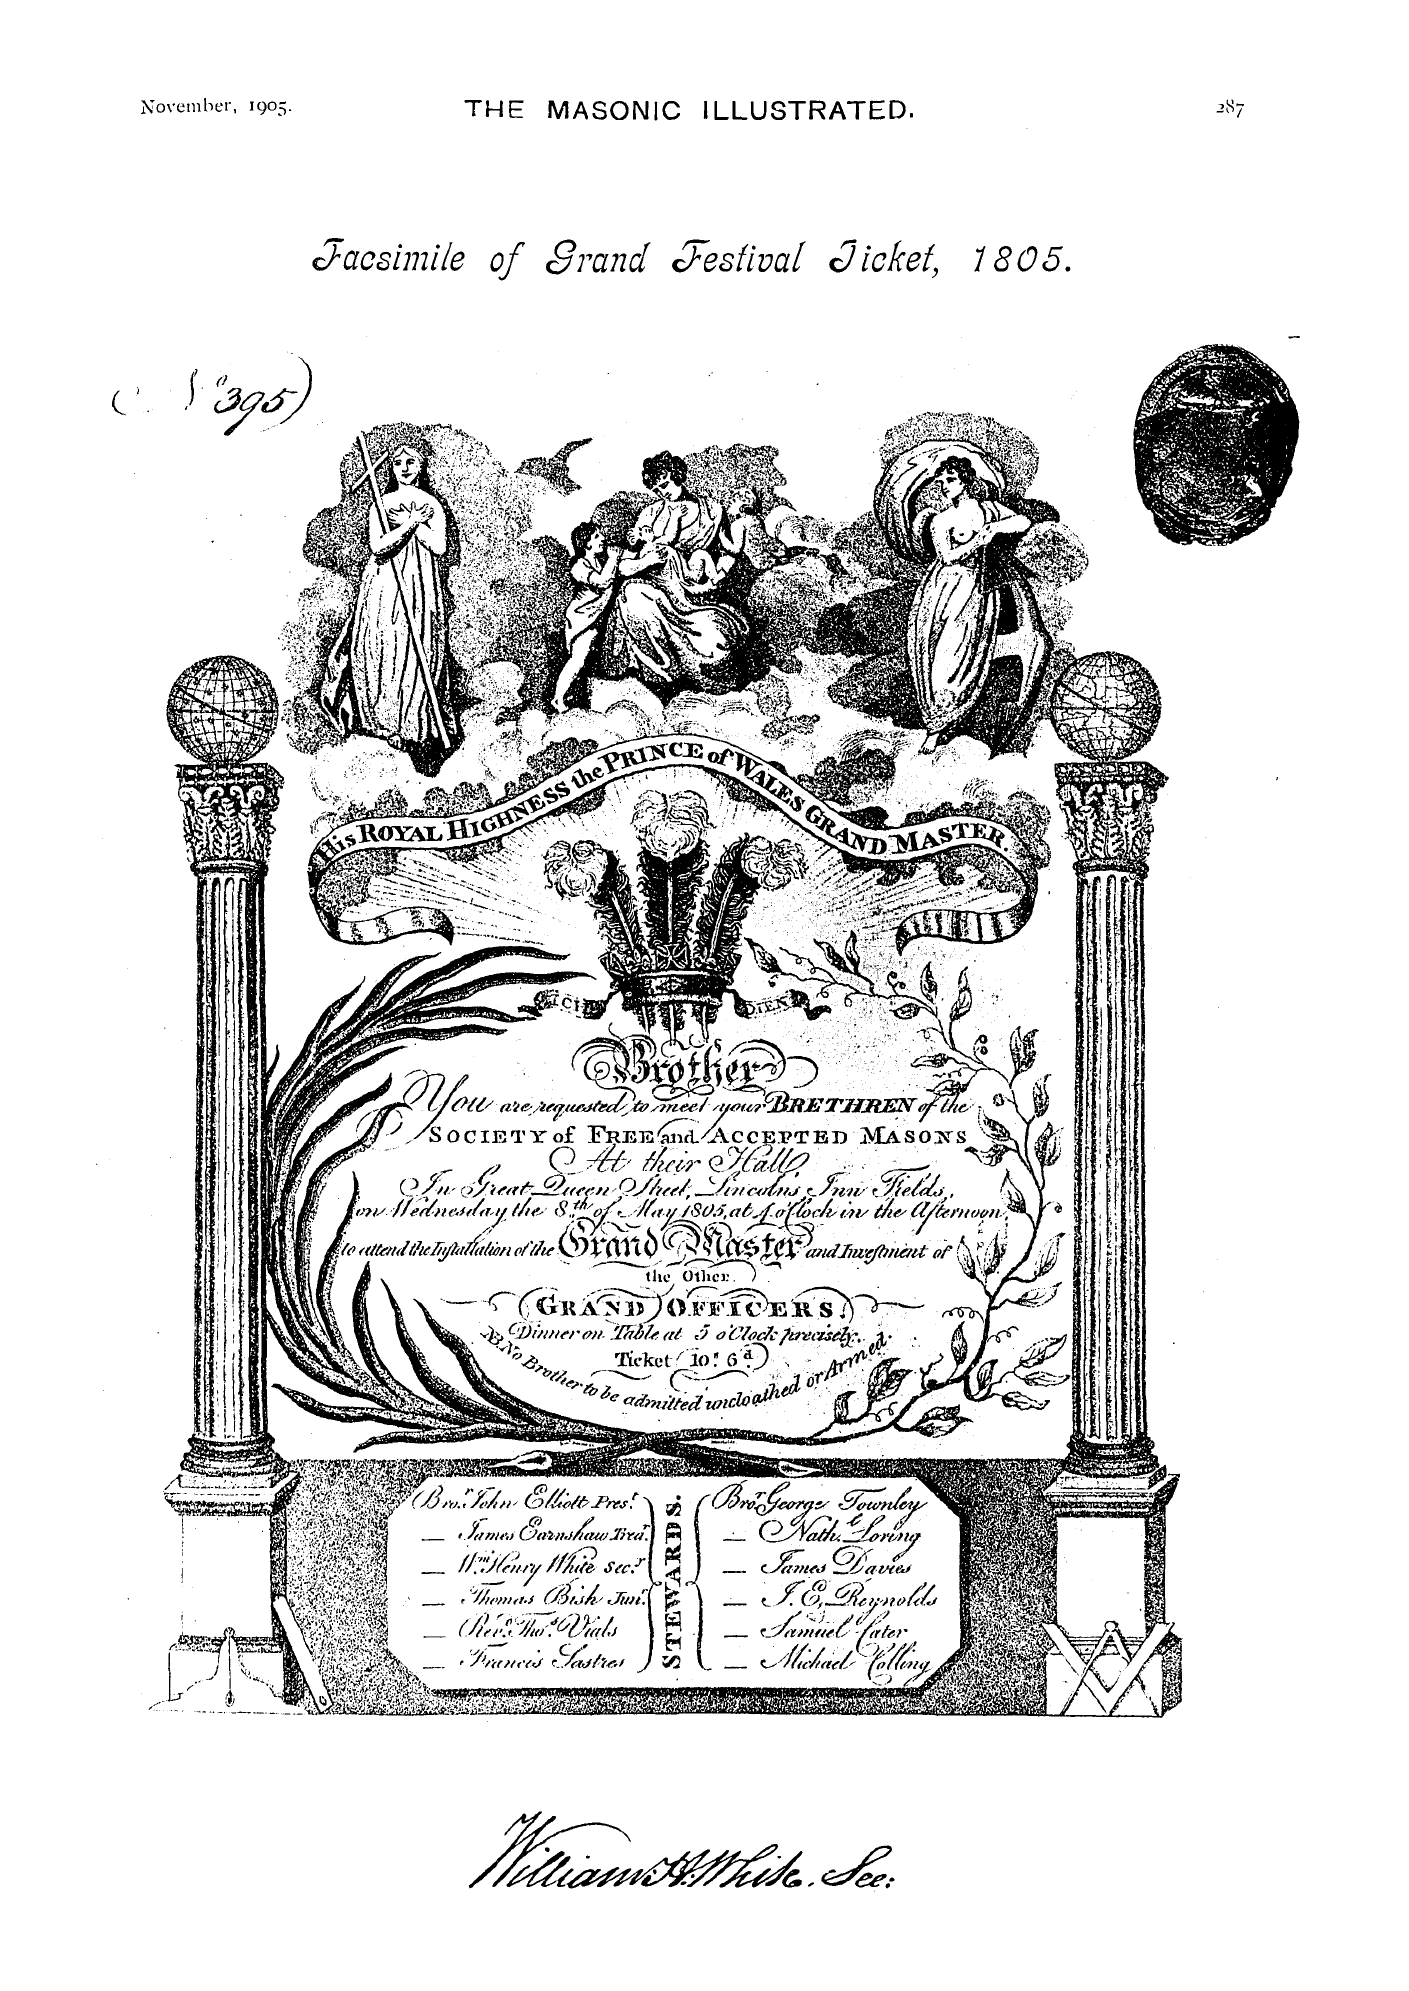 November, 1905.
THE MASONIC ILLUSTRATED.
287
Facsimile of Grand Festival Ticket, 1805.
No 395)
His ROYAL HIGHNESS the PRINCE of WALES GRAND MASTER.
ICH DIEN
Brother
You are requested to meet your BRETHREN of the
SOCIETY of FREE and ACCEPTED MASONS
At their Hall,
In Great Queen Street, Lincolns Inn Fields,
on Wednesday the 8th of May 1805, at 4 o'Clock in the Afternoon,
to attend the Installation of the Grand Master and Investment of
the Other
GRAND OFFICERS.
Dinner on Table at 5 o'Clock precisely.
Ticket 10s. 6d.
NB. No Brother to be admitted uncloathed or Armed.
STEWARDS.
Bror. John Elliott Prest.
— James Earnshaw Trear.
— Wm. Henry White Secr.
— Thomas Bish Junr.
— Revd. Thos. Vials
— Francis Sastres
Bror. George Townley
— Nathl. Loring
— James Davies
— J. E. Reynolds
— Samuel Cater
— Michael Colling
William H. White. Sec: